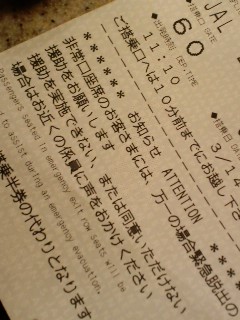 JAL
搭乗口 GATE
60
出発時刻 DEP.TIME
11:10
搭乗日 DATE
3/14
ご搭乗口へは10分前までにお越し下さ
お知らせ ATTENTION
非常口座席のお客さまには、万一の場合緊急脱出の
援助をお願いします
援助を実施できない、または同意いただけない
場合はお近くの係員に声をおかけください
Passengers seated in emergency exit row seats will be
to assist during an emergency evacuation.
搭乗半券の代わりとなります